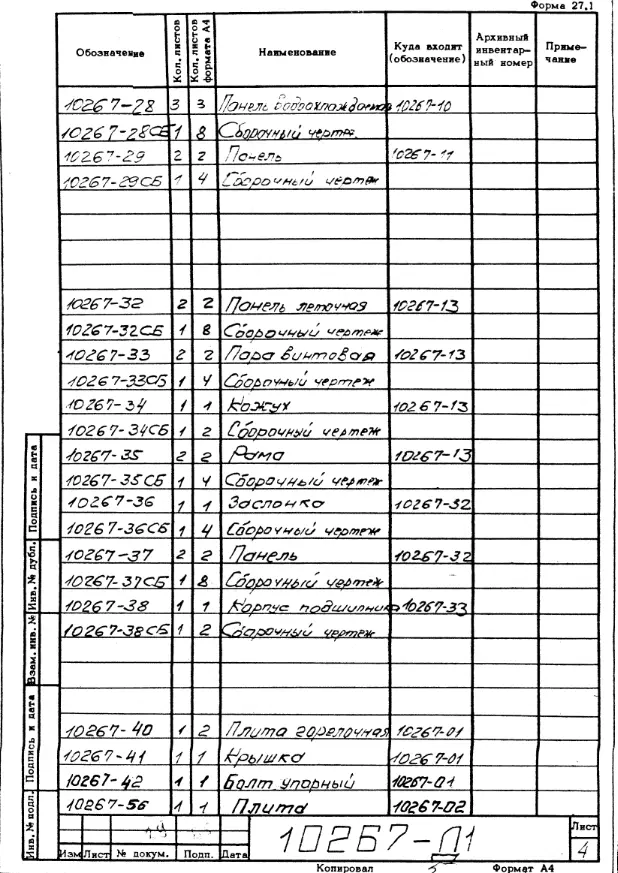 Форма 27.1
Обозначение Кол. листов Кол. листов формата А4 Наименование Куда входит (обозначение) Архивный инвентар-ный номер Приме-чание
10267-28 3 3 Панель водоохлаждаемая 10267-10
10267-28СБ 1 8 Сборочный чертеж
10267-29 2 2 Панель 10267-11
10267-29СБ 1 4 Сборочный чертеж
10267-32 2 2 Панель леточная 10267-13
10267-32СБ 1 8 Сборочный чертеж
10267-33 2 2 Пара винтовая 10267-13
10267-33СБ 1 4 Сборочный чертеж
10267-34 1 1 Кожух 10267-13
10267-34СБ 1 2 Сборочный чертеж
10267-35 2 2 Рама 10267-13
10267-35СБ 1 4 Сборочный чертеж
10267-36 1 1 Заслонка 10267-32
10267-36СБ 1 4 Сборочный чертеж
10267-37 2 2 Панель 10267-32
10267-37СБ 1 8 Сборочный чертеж
10267-38 1 1 Корпус подшипника 10267-33
10267-38СБ 1 2 Сборочный чертеж
10267-40 1 2 Плита горелочная 10267-01
10267-41 1 1 Крышка 10267-01
10267-42 1 1 Болт упорный 10267-01
10267-56 1 1 Плита 10267-02
Подпись и дата
Инв. № дубл.
Взам. инв. №
Подпись и дата
Инв. № подл.
Изм Лист № докум. Подп. Дата
10267-Д1
Лист
4
Копировал Формат А4